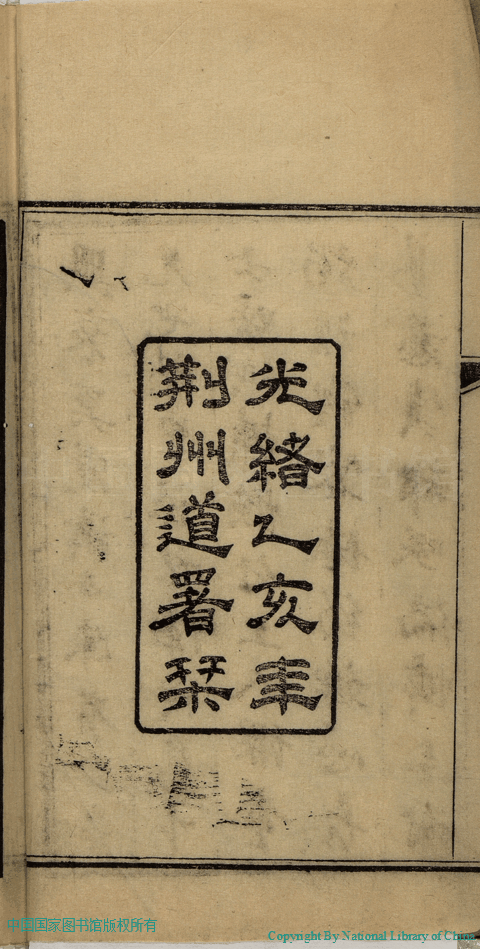 光緒乙亥年
荆州道署栞
中国国家图书馆版权所有
Copyright By National Library of China